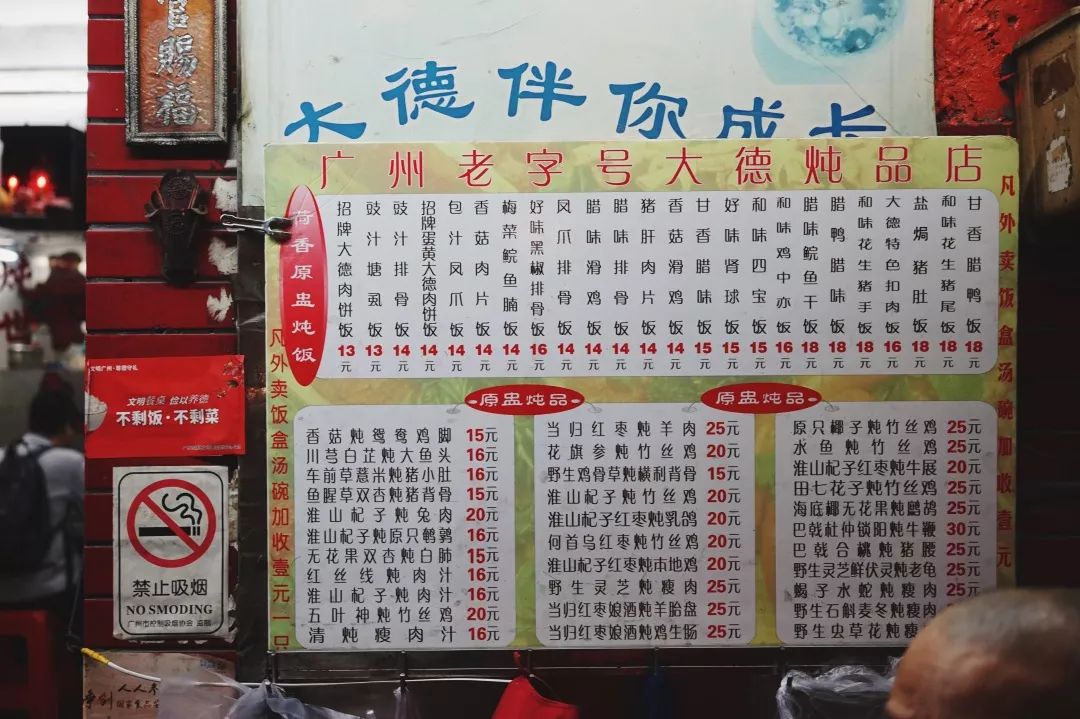 官赐福
大德伴你成长
广州老字号大德炖品店
荷香原盅炖饭
招牌大德肉饼饭 13元
豉汁塘虱饭 13元
豉汁排骨饭 14元
招牌蛋黄大德肉饼饭 14元
包汁凤爪饭 14元
香菇肉片饭 14元
梅菜鲩鱼腩饭 14元
好味黑椒排骨饭 16元
凤爪排骨饭 14元
腊味滑鸡饭 14元
腊味排骨饭 14元
猪肝肉片饭 14元
香菇滑鸡饭 14元
甘香腊味饭 15元
好味肾球饭 15元
和味四宝饭 15元
和味鸡中亦饭 16元
腊味鲩鱼干饭 18元
腊鸭腊味饭 18元
和味花生猪手饭 18元
大德特色扣肉饭 16元
盐焗猪肚饭 18元
和味花生猪尾饭 18元
甘香腊鸭饭 18元
凡外卖饭盒汤碗加收壹元一只
凡外卖饭盒汤碗加收壹元
原盅炖品
香菇炖鸳鸯鸡脚 15元
川芎白芷炖大鱼头 16元
车前草薏米炖猪小肚 16元
鱼腥草双杏炖猪背骨 15元
淮山杞子炖兔肉 20元
淮山杞子炖原只鹌鹑 16元
无花果双杏炖白肺 15元
红丝线炖肉汁 16元
淮山杞子炖肉汁 16元
五叶神炖竹丝鸡 20元
清炖瘦肉汁 16元
当归红枣炖羊肉 25元
花旗参炖竹丝鸡 25元
野生鸡骨草炖横利背骨 15元
淮山杞子炖竹丝鸡 20元
淮山杞子红枣炖乳鸽 20元
何首乌红枣炖竹丝鸡 20元
淮山杞子红枣炖本地鸡 20元
野生灵芝炖瘦肉 25元
当归红枣娘酒炖羊胎盘 25元
当归红枣娘酒炖鸡生肠 25元
原盅炖品
原只椰子炖竹丝鸡 25元
水鱼炖竹丝鸡 25元
淮山杞子红枣炖牛展 20元
田七花子炖竹丝鸡 25元
海底椰无花果炖鹧鸪 25元
巴戟杜仲锁阳炖牛鞭 30元
巴戟合桃炖猪腰 25元
野生灵芝鲜伏灵炖老龟 25元
蝎子水蛇炖瘦肉 25元
野生石斛麦冬炖瘦肉
野生虫草花炖瘦
文明广州·尊德守礼
文明餐桌 俭以养德
不剩饭·不剩菜
禁止吸烟
NO SMODING
广州市控制吸烟协会 监制
争创
人人
国家